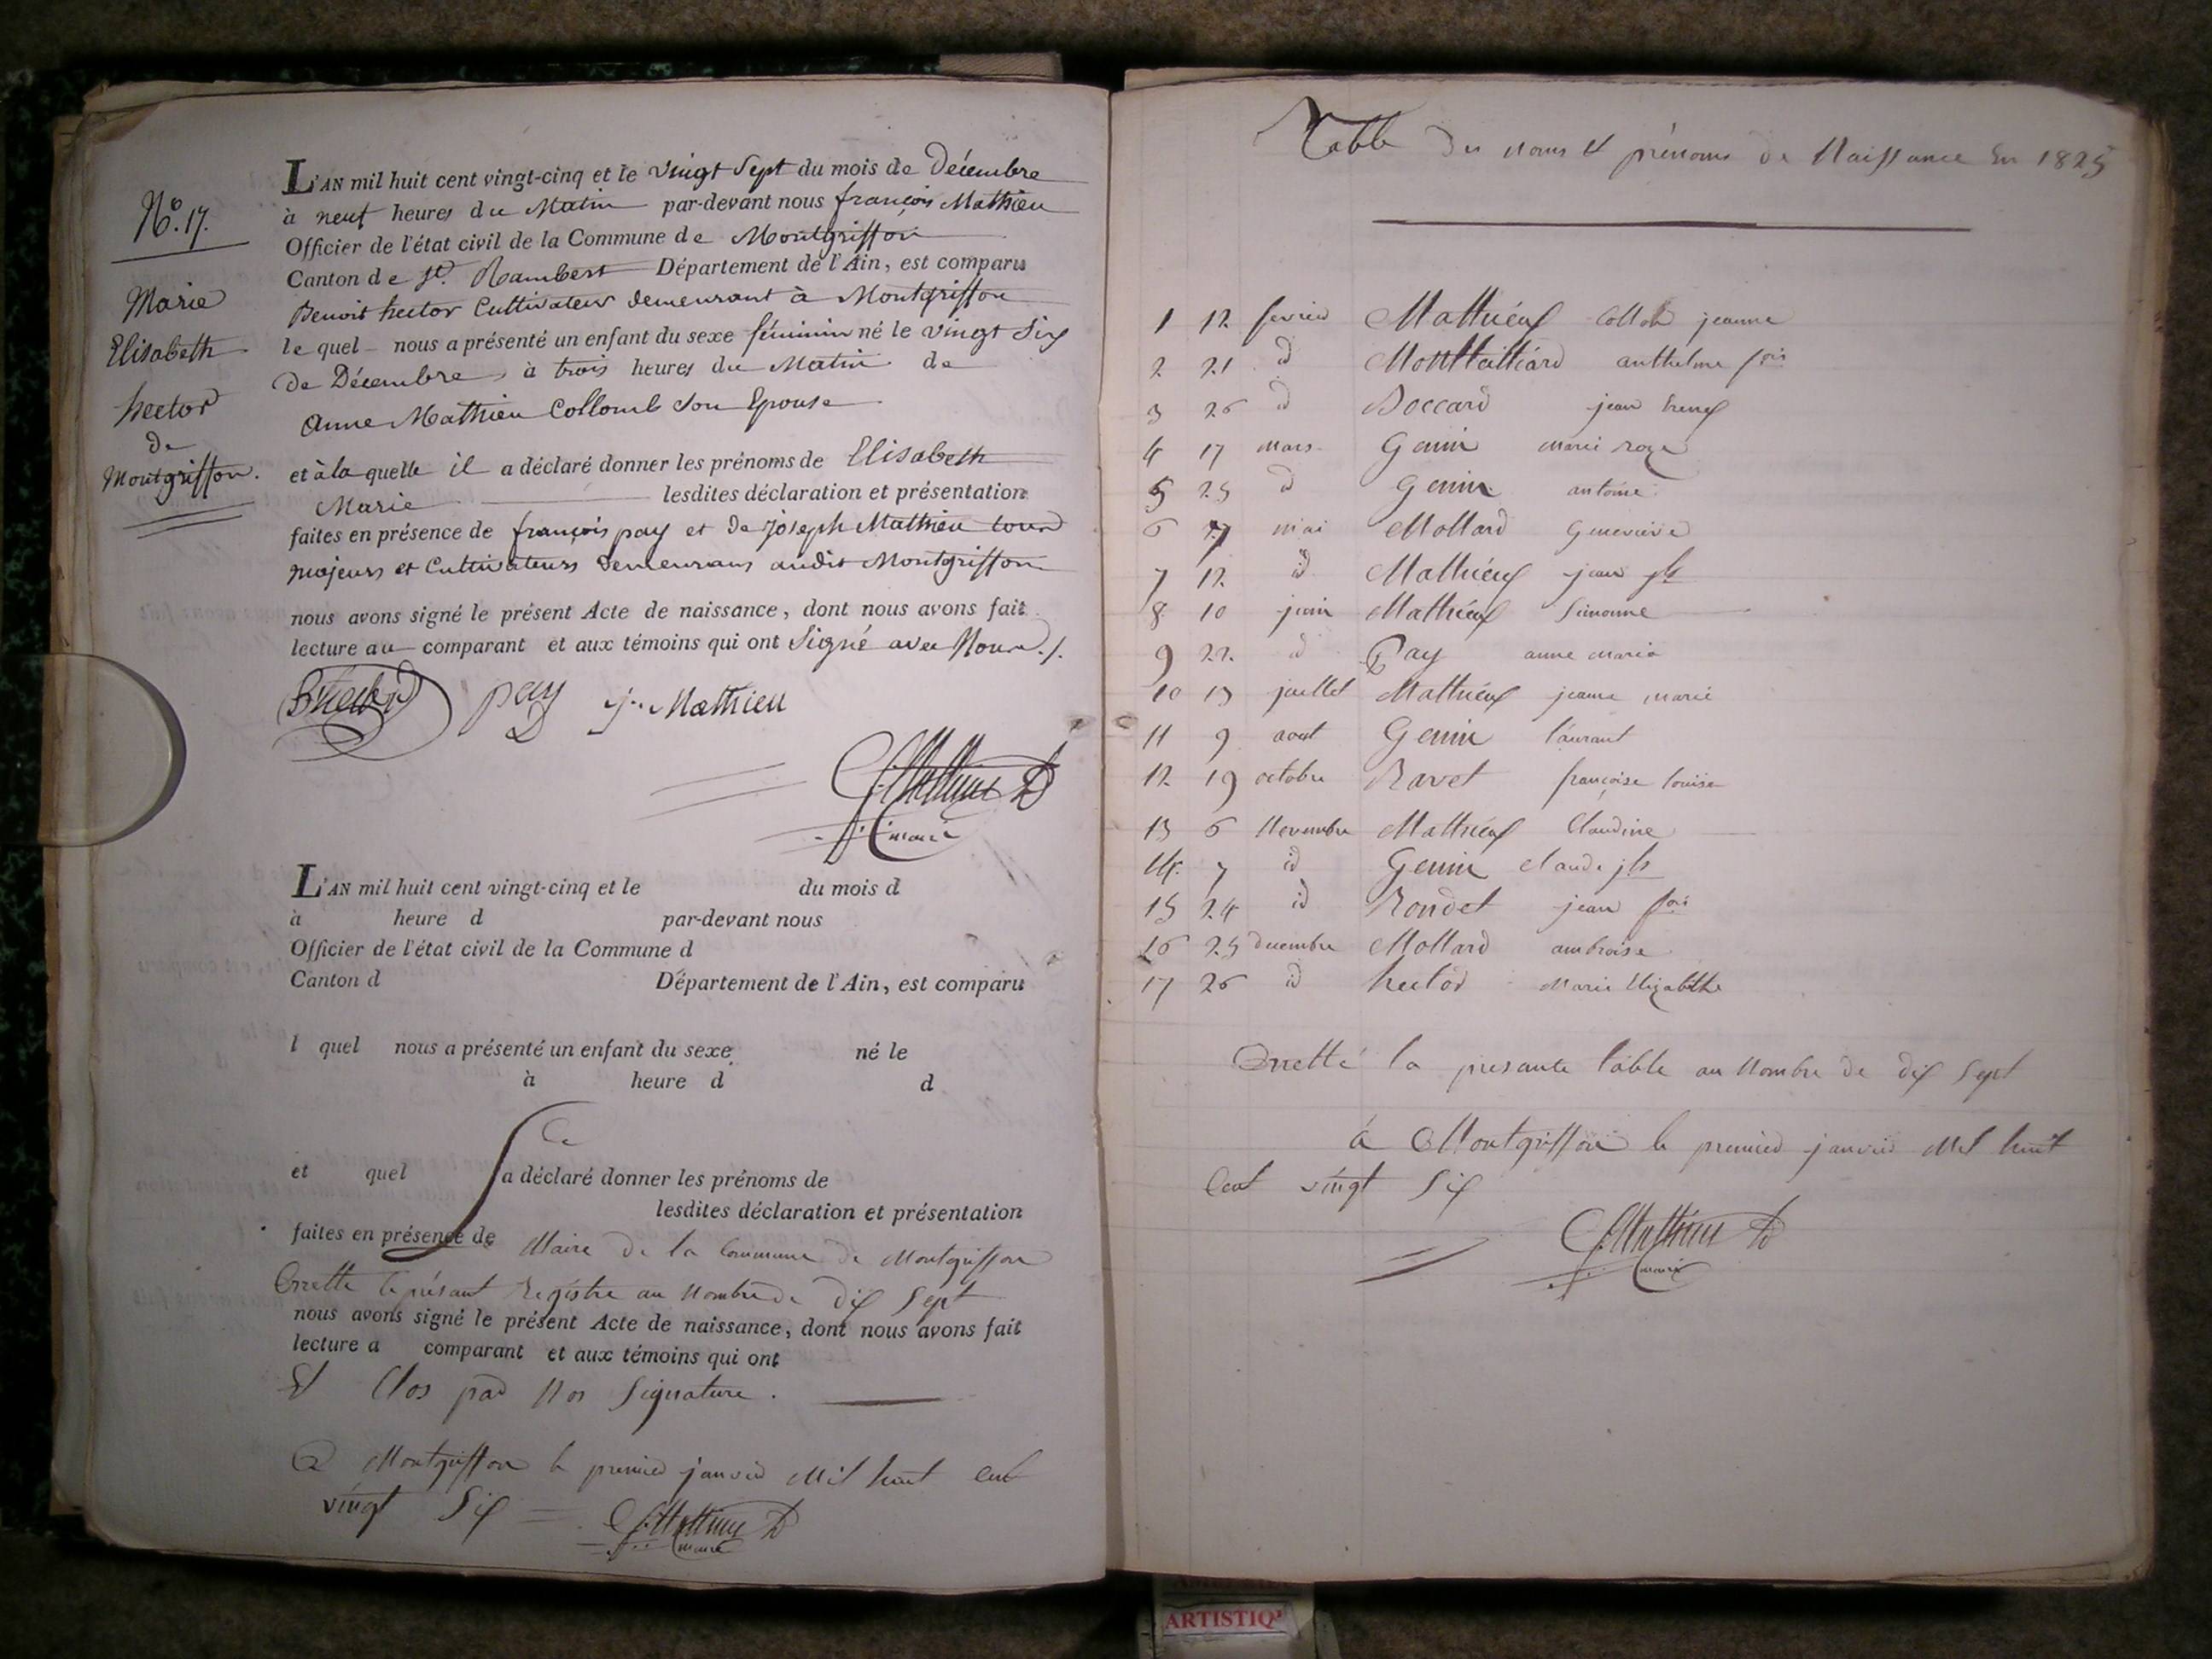 N.º 17.
Marie
Elisabeth
hector
de
Montgriffon.
L'AN mil huit cent vingt-cinq et le vingt Sept du mois de Décembre
à neuf heures du Matin par-devant nous françois Mathieu
Officier de l'état civil de la Commune de Montgriffon
Canton de St. Rambert Département de l'Ain, est comparu
Benoit hector Cultivateur demeurant à Montgriffon
le quel nous a présenté un enfant du sexe féminin né le vingt Six
de Décembre, à trois heures du Matin de
Anne Mathieu Collomb Son Epouse
et à la quelle il a déclaré donner les prénoms de Elisabeth
Marie lesdites déclaration et présentation
faites en présence de françois pay et de joseph Mathieu tous
majeurs et Cultivateurs demeurans audit Montgriffon
nous avons signé le présent Acte de naissance, dont nous avons fait
lecture au comparant et aux témoins qui ont Signé avec Nous ./.
pay
Mathieu
maire
L'AN mil huit cent vingt-cinq et le du mois d
à heure d par-devant nous
Officier de l'état civil de la Commune d
Canton d Département de l'Ain, est comparu
l quel nous a présenté un enfant du sexe né le
à heure d d
et quel a déclaré donner les prénoms de
lesdites déclaration et présentation
faites en présence de Maire de la Commune de Montgriffon
le présant Registre au Nombre de dix Sept
nous avons signé le présent Acte de naissance, dont nous avons fait
lecture a comparant et aux témoins qui ont
Et Clos par Nos Signature.
A Montgriffon le premier janvier Mil huit cent
vingt Six
maire
Table des Noms et prénoms de Naissance En 1825
1 12 fevrier Mathieux Collob jeanne
2 21 id Montbailliard anthelme fois
3 26 id Boccard jean
4 17 Mars Genin Marie roze
5 25 id Genin antoine
6 27 mai Mollard Genevieve
7 12 id Mathieux jean
8 10 juin Mathieux Simonne
9 22 id Pay anne Marie
10 13 juillet Mathieux jeanne marie
11 9 aout Genin laurant
12 19 octobre Ravet françoise louise
13 6 Novembre Mathieux Claudine
14 7 id Genin claude
15 24 id Rondet jean fois
16 25 decembre Mollard ambroise
17 26 id hector Marie Elizabethe
Arretté la presante table au Nombre de dix Sept
à Montgriffon le premier janvier Mil huit
Cent vingt Six
maire
ARTISTIQ